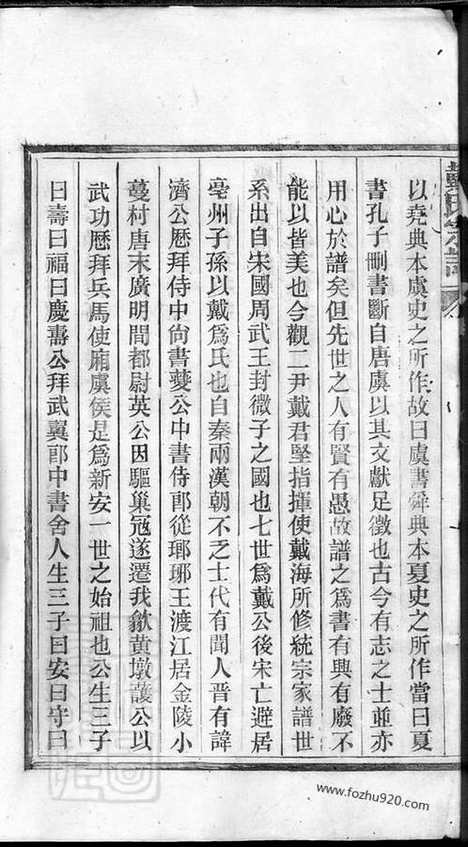 以堯典本虞史之所作故曰虞書舜典本夏史之所作當曰夏
書孔子刪書斷自唐虞以其文獻足徵也古今有志之士並亦
用心於譜矣但先世之人有賢有愚故譜之為書有興有廢不
能以皆美也今觀二尹戴君堅指揮使戴海所修統宗家譜世
系出自宋國周武王封微子之國也七世為戴公後宋亡避居
亳州子孫以戴為氏也自秦兩漢朝不乏士代有聞人晉有諱
濟公歷拜侍中尚書夔公中書侍郎從瑯琊王渡江居金陵小
蔓村唐末廣明間都尉英公因驅巢寇遂遷我歙黃墩護公以
武功歷拜兵馬使廂虞侯是為新安一世之始祖也公生三子
曰壽曰福曰慶壽公拜武翼郎中書舍人生三子曰安曰守曰
www.fozhu920.com